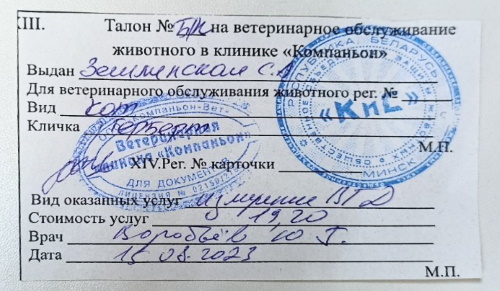 XIII. Талон № Б/Н на ветеринарное обслуживание
животного в клинике «Компаньон»
Выдан Землинской С.
Для ветеринарного обслуживания животного рег. №
Вид кот
Кличка
М.П.
XIV.Рег. № карточки
Вид оказанных услуг измерение ВГД
Стоимость услуг 19,20
Врач Воробьёв Ю. Г.
Дата 15.08.2023
М.П.
Компаньон-Вет
Ветеринарная
клиника «Компаньон»
ДЛЯ ДОКУМЕНТОВ
ЛИЦЕНЗИЯ № 02150/
РЕСПУБЛИКА БЕЛАРУСЬ
«КиС»
МИНСК